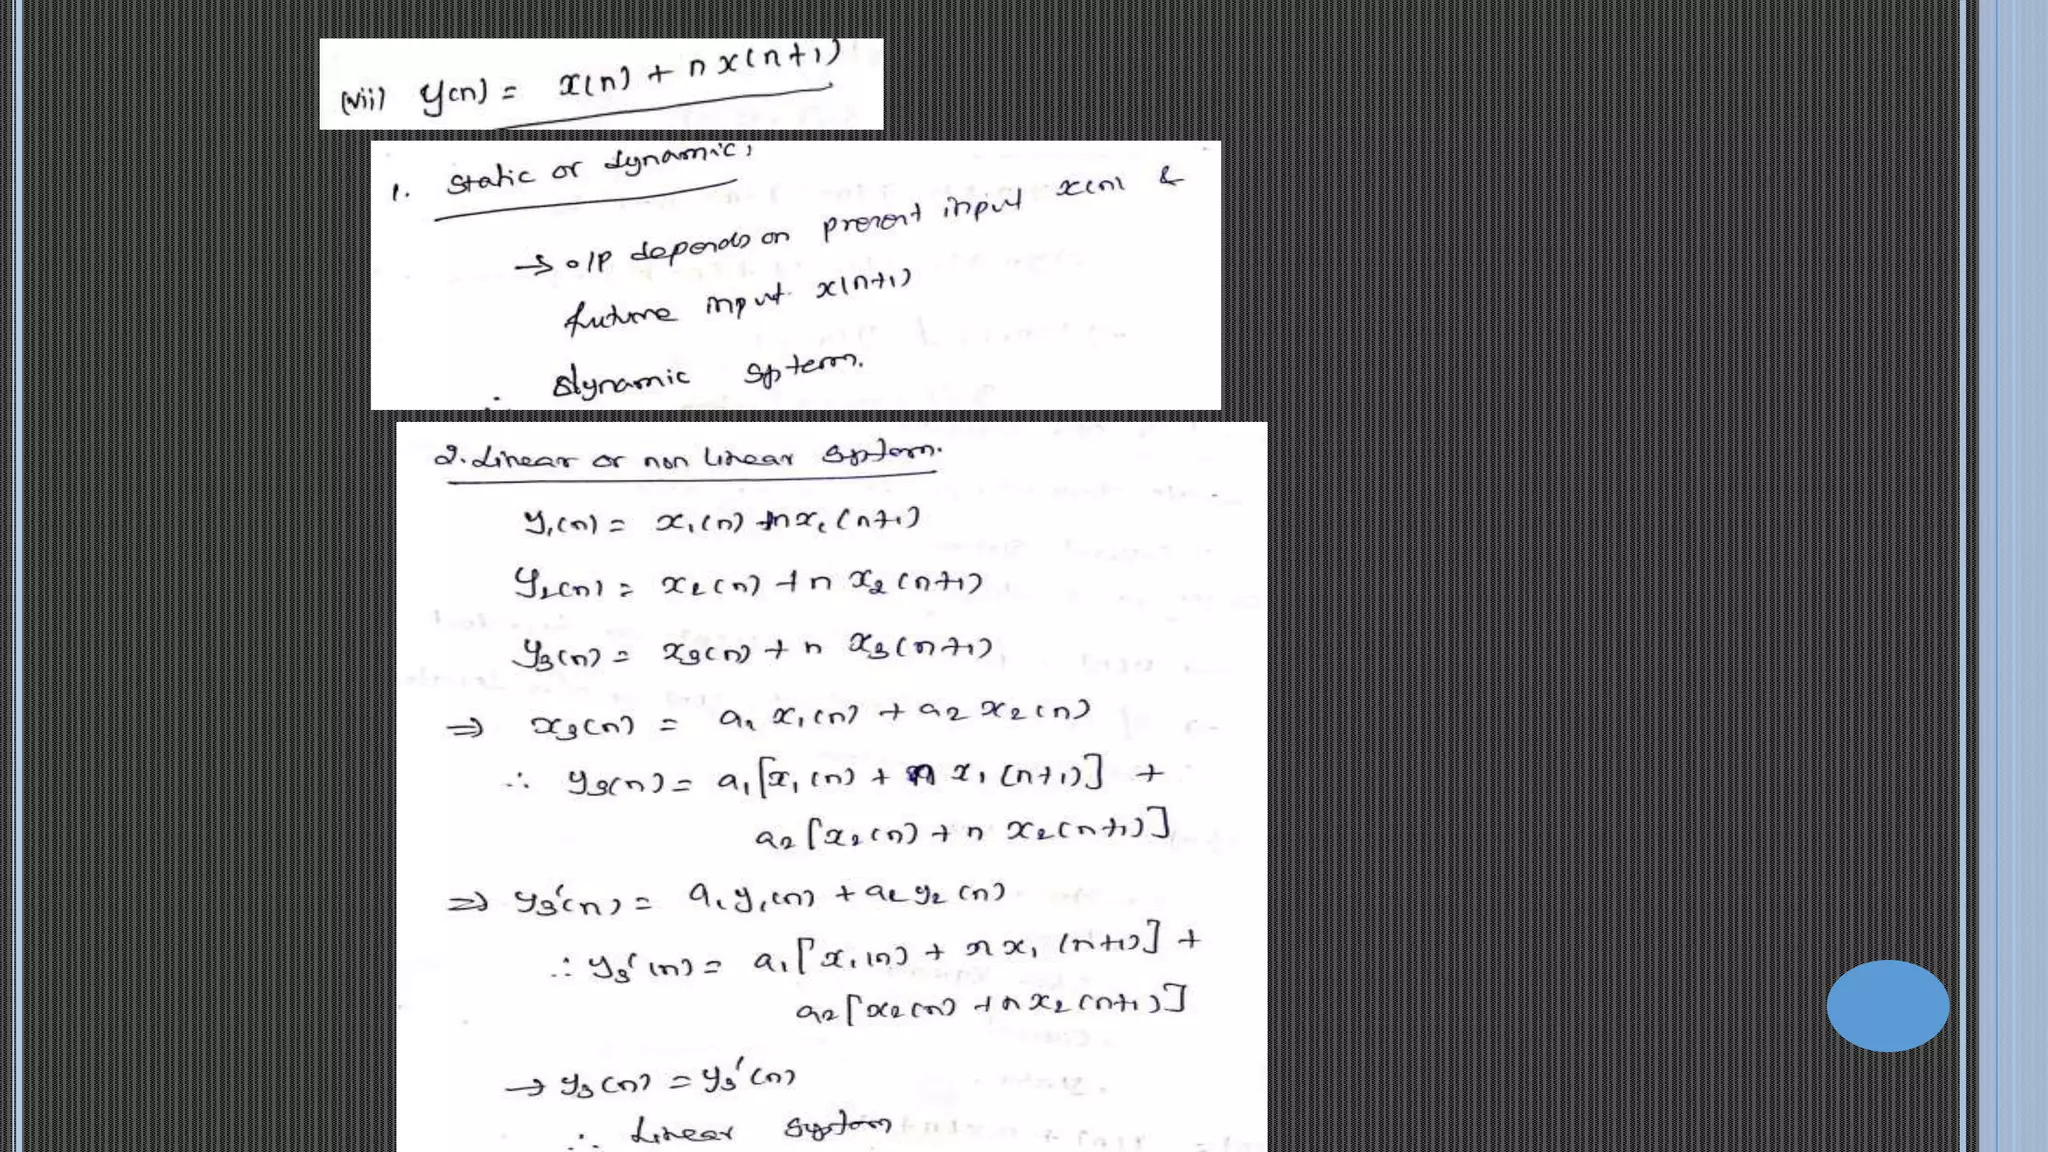 (vii) y(n) = x(n) + n x(n+1)
1. Static or dynamic,
→ o/p depends on present input x(n) &
future input x(n+1)
∴ dynamic system.
2. Linear or non linear system.
y₁(n) = x₁(n) + n x₁(n+1)
y₂(n) = x₂(n) + n x₂(n+1)
y₃(n) = x₃(n) + n x₃(n+1)
⇒ x₃(n) = a₁ x₁(n) + a₂ x₂(n)
∴ y₃(n) = a₁[x₁(n) + n x₁(n+1)] +
a₂[x₂(n) + n x₂(n+1)]
⇒ y₃'(n) = a₁y₁(n) + a₂y₂(n)
∴ y₃'(n) = a₁[x₁(n) + n x₁(n+1)] +
a₂[x₂(n) + n x₂(n+1)]
→ y₃(n) = y₃'(n)
∴ Linear system